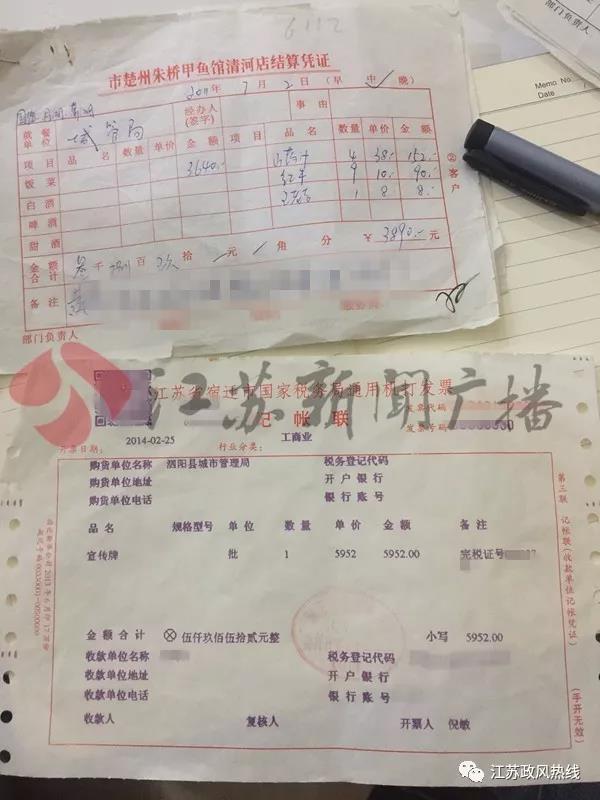 6112
市楚州朱桥甲鱼馆清河店结算凭证
2011年7月2日(早 中 晚)
就餐单位 城管局 经办人(签字) 事由
项目 品名 数量 单价 金额 项目 品名 数量 单价 金额
饭菜 3640.- 4 38.- 152.-
白酒 红牛 9 10.- 90.-
啤酒 1 8 8.-
甜酒
金额合计 叁千捌百玖拾 元 角 分 ¥3890.-元
备注
部门负责人
②客户
部门负责人
Memo No.
江苏新闻广播
江苏省宿迁市国家税务局通用机打发票
记帐联
发票代码
发票号码
开票日期: 2014-02-25 行业分类: 工商业
购货单位名称 泗阳县城市管理局 税务登记代码
购货单位地址 开户银行
购货单位电话 银行账号
品名 规格型号 单位 数量 单价 金额 备注
宣传牌 批 1 5952 5952.00 完税证号
金额合计 ⊗伍仟玖佰伍拾贰元整 小写 5952.00
收款单位名称 税务登记代码
收款单位地址 开户银行
收款单位电话 银行账号
收款人 复核人 开票人 倪敏
第三联 记帐联(收款单位记帐凭证)
(手开无效)
江苏政风热线